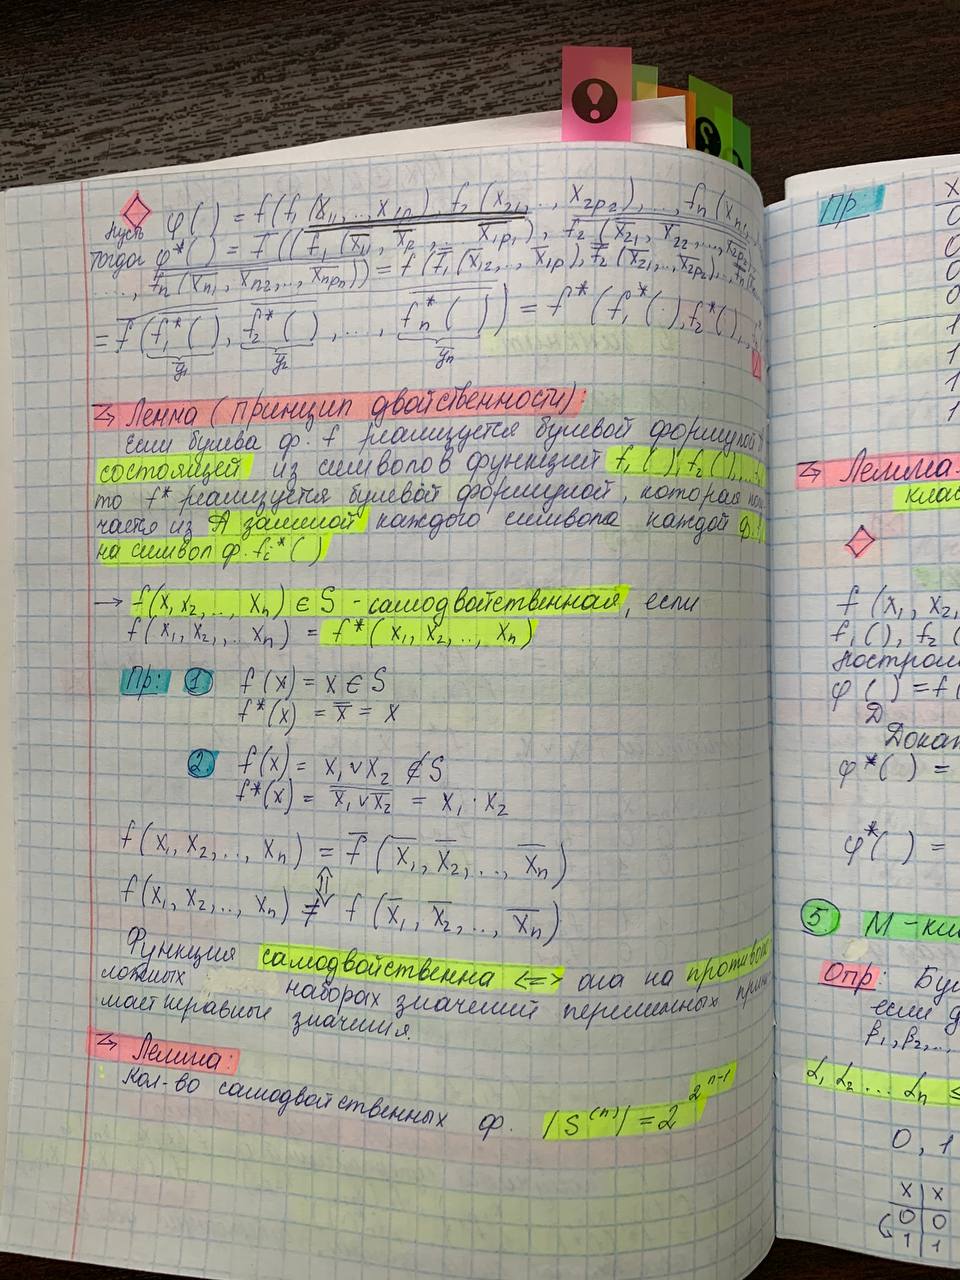 Пусть φ( ) = f(f₁(x₁₁,..,x₁p), f₂(x₂₁,.., x₂p₂),..., fn(xn₁,
Тогда φ*( ) = f̅((f₁(x̅₁₁, x̅p,.. x̅₁p₁), f₂(x̅₂₁, x̅₂₂,..., x̅₂p₂)..
..., fn(x̅n₁, x̅n₂,.., x̅npn)) = f̅(f̅₁(x₁₂,.., x₁p), f̅₂(x̅₂₁,.., x̅₂p₂),..
= f̅(f₁*( ), f₂*( ), ..., fn*( )) = f*(f₁*( ), f₂*( ),..,
y̅₁ y̅₂ y̅n
→ Лемма (принцип двойственности):
Если булева ф. f реализуется булевой формулой
состоящей из символов функций f₁( ), f₂( ),...
то f* реализуется булевой формулой, которая полу
чается из A заменой каждого символа каждой ф.
на символ ф. fi*( )
→ f(x₁ x₂,.., xn) ∈ S - самодвойственная, если
f(x₁, x₂,... xn) = f*(x₁, x₂,.., xn)
Пр: 1 f(x) = x ∈ S
f*(x) = x̿ = x
2. f(x) = x₁ ∨ x₂ ∉ S
f*(x) = x̅₁ ∨ x̅₂ = x₁ · x₂
f(x₁, x₂,.., xn) = f̅(x̅₁, x̅₂,.., x̅n)
⇕
f(x₁, x₂,.., xn) ≠ f(x̅₁, x̅₂,.., x̅n)
Функция самодвойственна <=> она на противопо
ложных наборах значений переменных прини
мает неравные значения.
→ Лемма:
Кол-во самодвойственных ф. |S⁽ⁿ⁾| = 2^2^n-1
Пр
x
0
0
0
0
1
1
1
1
→ Лемма
клас
f(x₁, x₂,
f₁( ), f₂(
построен
φ( ) = f(
Д
Докаж
φ*( ) =
φ*( ) =
5. M - кла
Опр: Бул
если д
β₁, β₂,..,
α₁ α₂ ... αn ≤
0, 1
x | x
0 | 0
1 | 1